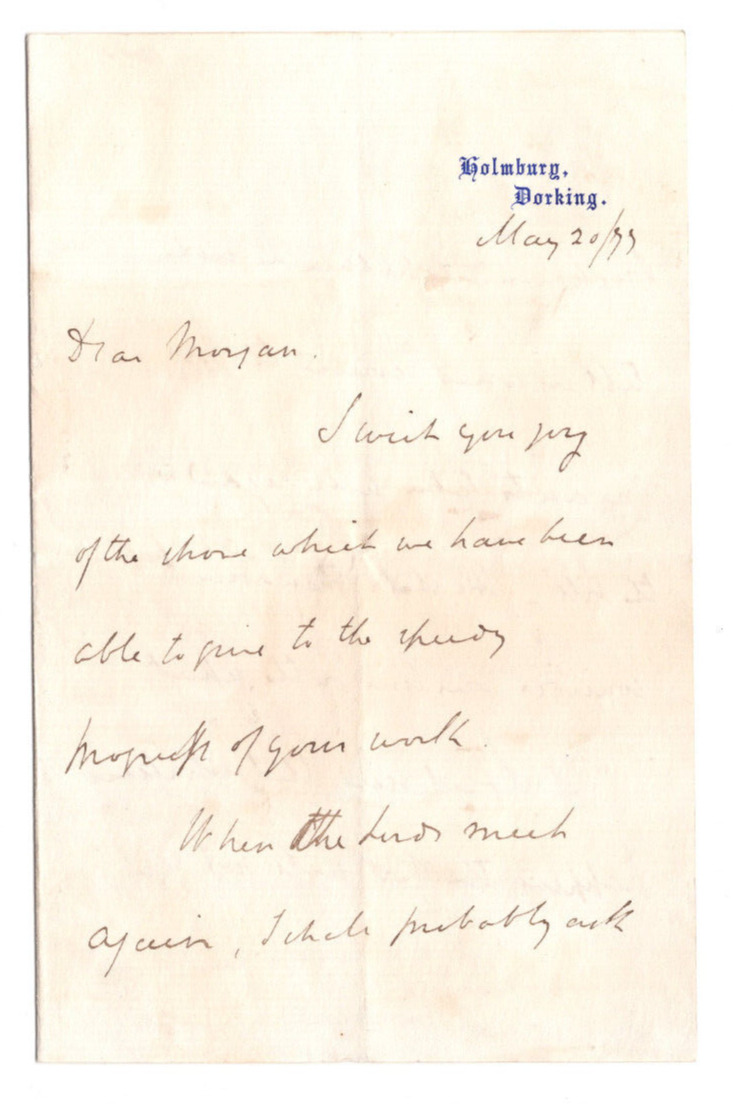 Holmbury,
Dorking.
May 20/77
Dear Morgan.
I wish you joy
of the shove which we have been
able to give to the speedy
progress of your work.
When the Lords meet
again, I shall probably ask